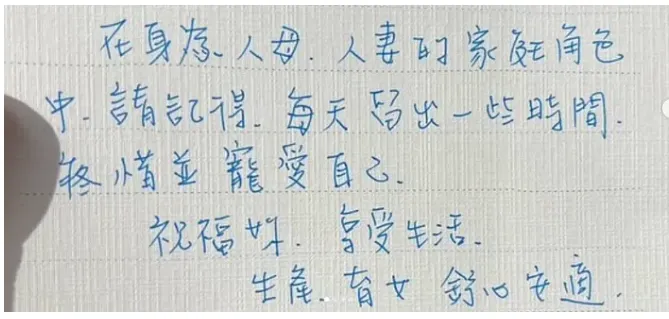 在身為人母.人妻的家庭角色
中.請記得.每天留出一些時間.
疼惜並寵愛自己.
祝福妳.享受生活.
生產.育女 舒心安適.